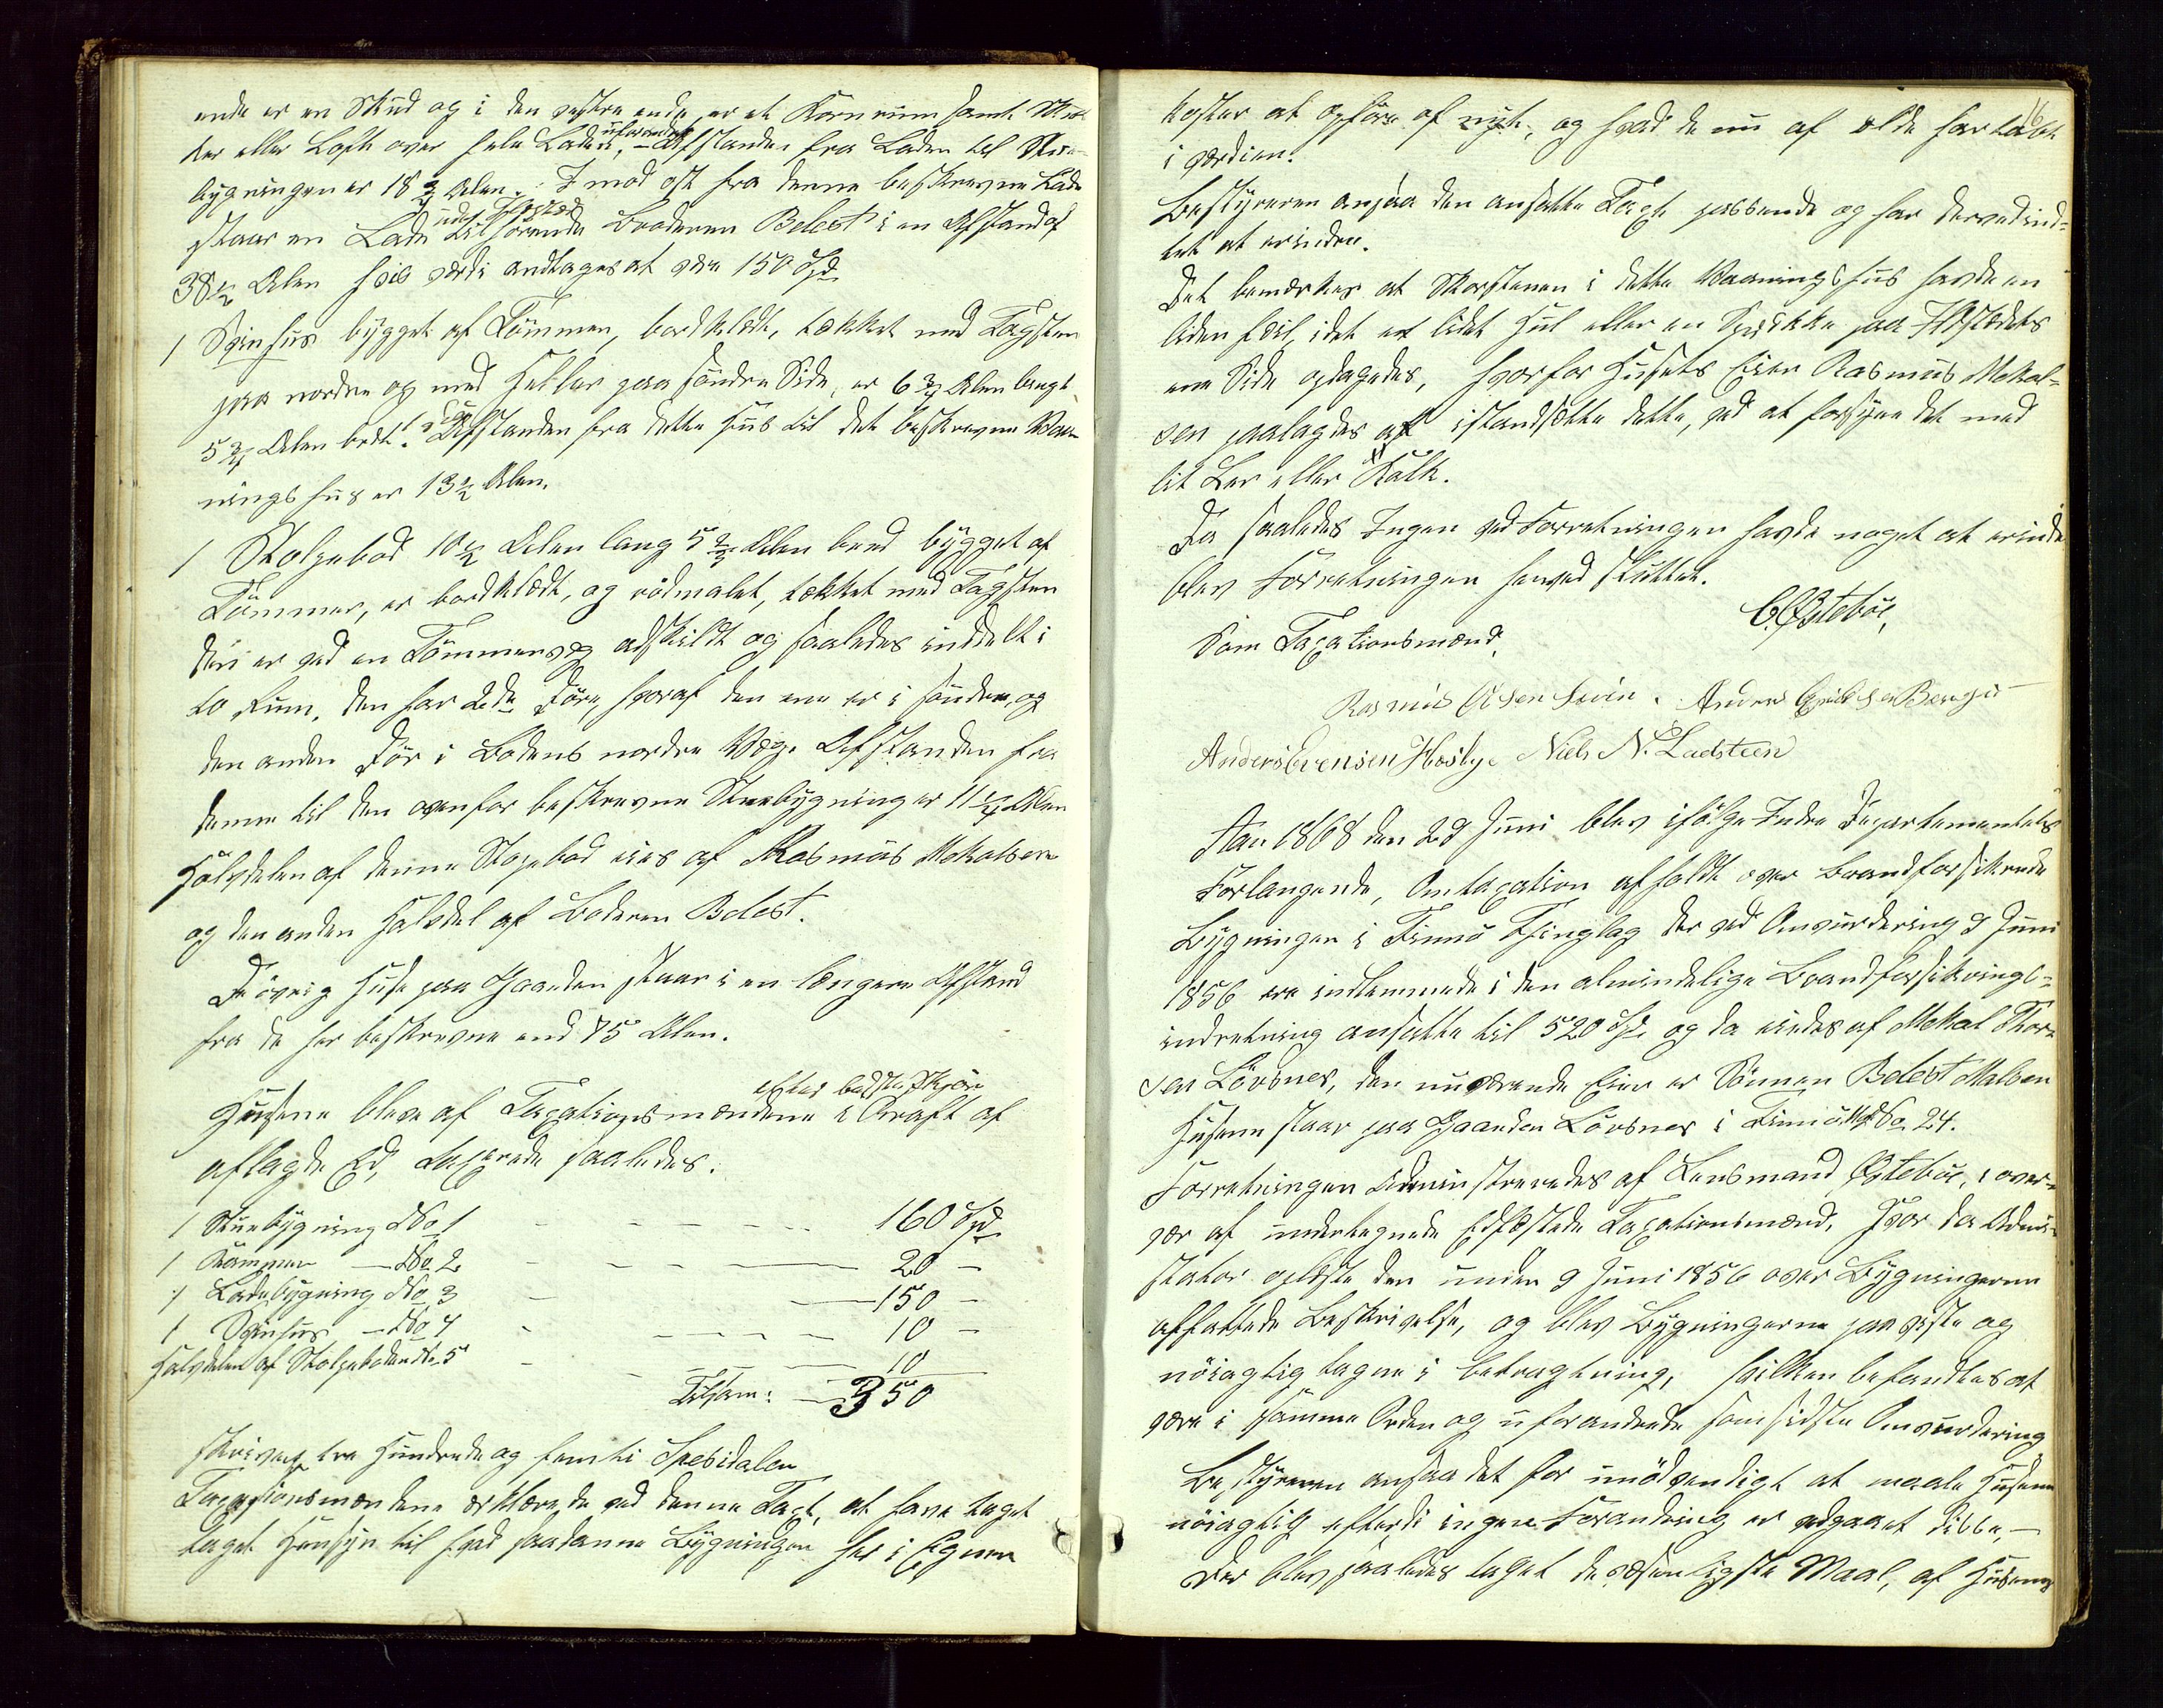 ende er en Skud og i den vestre ende er et Kornrum samt
der eller Loft over hele Laden, uforandret – Afstanden fra Laden til Stue-
bygningen er 18 3/4 Alen. I mod ost fra denne beskrevne Lade
staar en Lade uden Ildsted tilhørende Broderen Belest i en Afstand af
38 1/2 Alen hvis værdi andtages at være 150 Spd
1 Svinhus bygget af Tømmer, bordklædt, tækket med Tagsten
paa nordre og med Heller paa søndre Side, er 6 3/4 Alen langt,
5 3/4 Alen bredt. Afstanden fra dette Hus til det beskrevne Vaa-
ningshus er 13 1/2 Alen.
1 Stolpebod 10 1/2 Alen lang 5 3/4 Alen bred bygget af
Tømmer, er bordklædt, og rødmalet, tækket med Tagsten
den er ved en Tømmervæg adskildt og saaledes inddelt i
to Rum, den har 2de Døre, hvoraf den ene er i søndre, og
den anden Dør i Bodens nordre Væg. Afstanden fra
denne til den ovenfor beskrevne Stuebygning er 11 1/4 Alen
Halvdelen af denne Stopebod eies af Rasmus Mekalsen
og den anden Halvdel af Broderen Belest.
De øvrig Huse paa Gaarden staar i en længere Afstand
fra de her beskrevne end 75 Alen.
Husene bleve af Taxationsmændene efter bedste Skjøn i Kraft af
aflagde Ed, taxerede saaledes.
1 Stuebygning No 1 - - - - 160 Spd
1 Kammer – No 2 - - - 20 –
1 Ladebygning No 3 - - 150 –
1 Svinhus – No 4 - - - 10 –
Halvdelen af Stolpeboden No 5 - - - 10
Tilsam: – 350
skriver tre Hundrede og femti Spesidaler
Taxasionsmændene erklærede ved denne Taxt, at have taget
taget Hensyn til hvad saadanne Bygninger her i Egnen
16
koster at opføre af nyt, og hvad de nu af ælde har tabt
i værdien.
Bestyreren ansaa den ansatte Taxt passende og har derved ind-
tet at erindre.
Det bemærkes at Skorstenen i dette Vaaningshus havde en
liden feil, idet et lidet Hul eller en Sprække paa Ildstedets
ene Side opdagedes, hvorfor Husets Eier Rasmus Mekal-
sen paalagdes at istandsætte dette, ved at forsyne det med
lit Ler eller Kalk.
Da saaledes Ingen ved Forretningen havde noget at erindre
blev Forretningen hermed sluttet.
C. Østebøe,
Som Taxationsmænd,
Rasmus Olsen . Anders
Anders Evensen Hosby. Niels N. Ladsteen
Aar 1868 den 29 Juni blev ifølge Indre Departementets
Forlangende, Omtaxation afholdt over brandforsikrede
Bygninger i Finnø Thinglag der ved Omvurdering 9 Juni
1856 ere indlemmede i den almindelige Brandforsikrings-
indretning ansatte til 520 Spd og da eiedes af Mekal Thor-
sen Løvsnes, den nuværende Eier er Sønnen Belest Malsen
Husene staar paa Gaarden Løvsnes i Finnø Mt No 24.
Forretningen Administreredes af Lensmand Østebøe, i over-
vær af undertegnede Edfæstede Taxationsmænd, hvor da Admi-
strator oplæste den under 9 Juni 1856 over Bygningerne
affattede Beskrivelse, og blev Bygningerne paaviste og
nøiagtig tagne i betragtning, hvilken befandtes at
være i samme Orden og uforandrede som sidste Omvurdering
Bestyreren ansaa det for unødvendigt at maale Husene
nøiagtig efterdi ingen Forandring er vedgaaet disse, –
Der blev saaledes taget de væsentligste Maal, af Husene